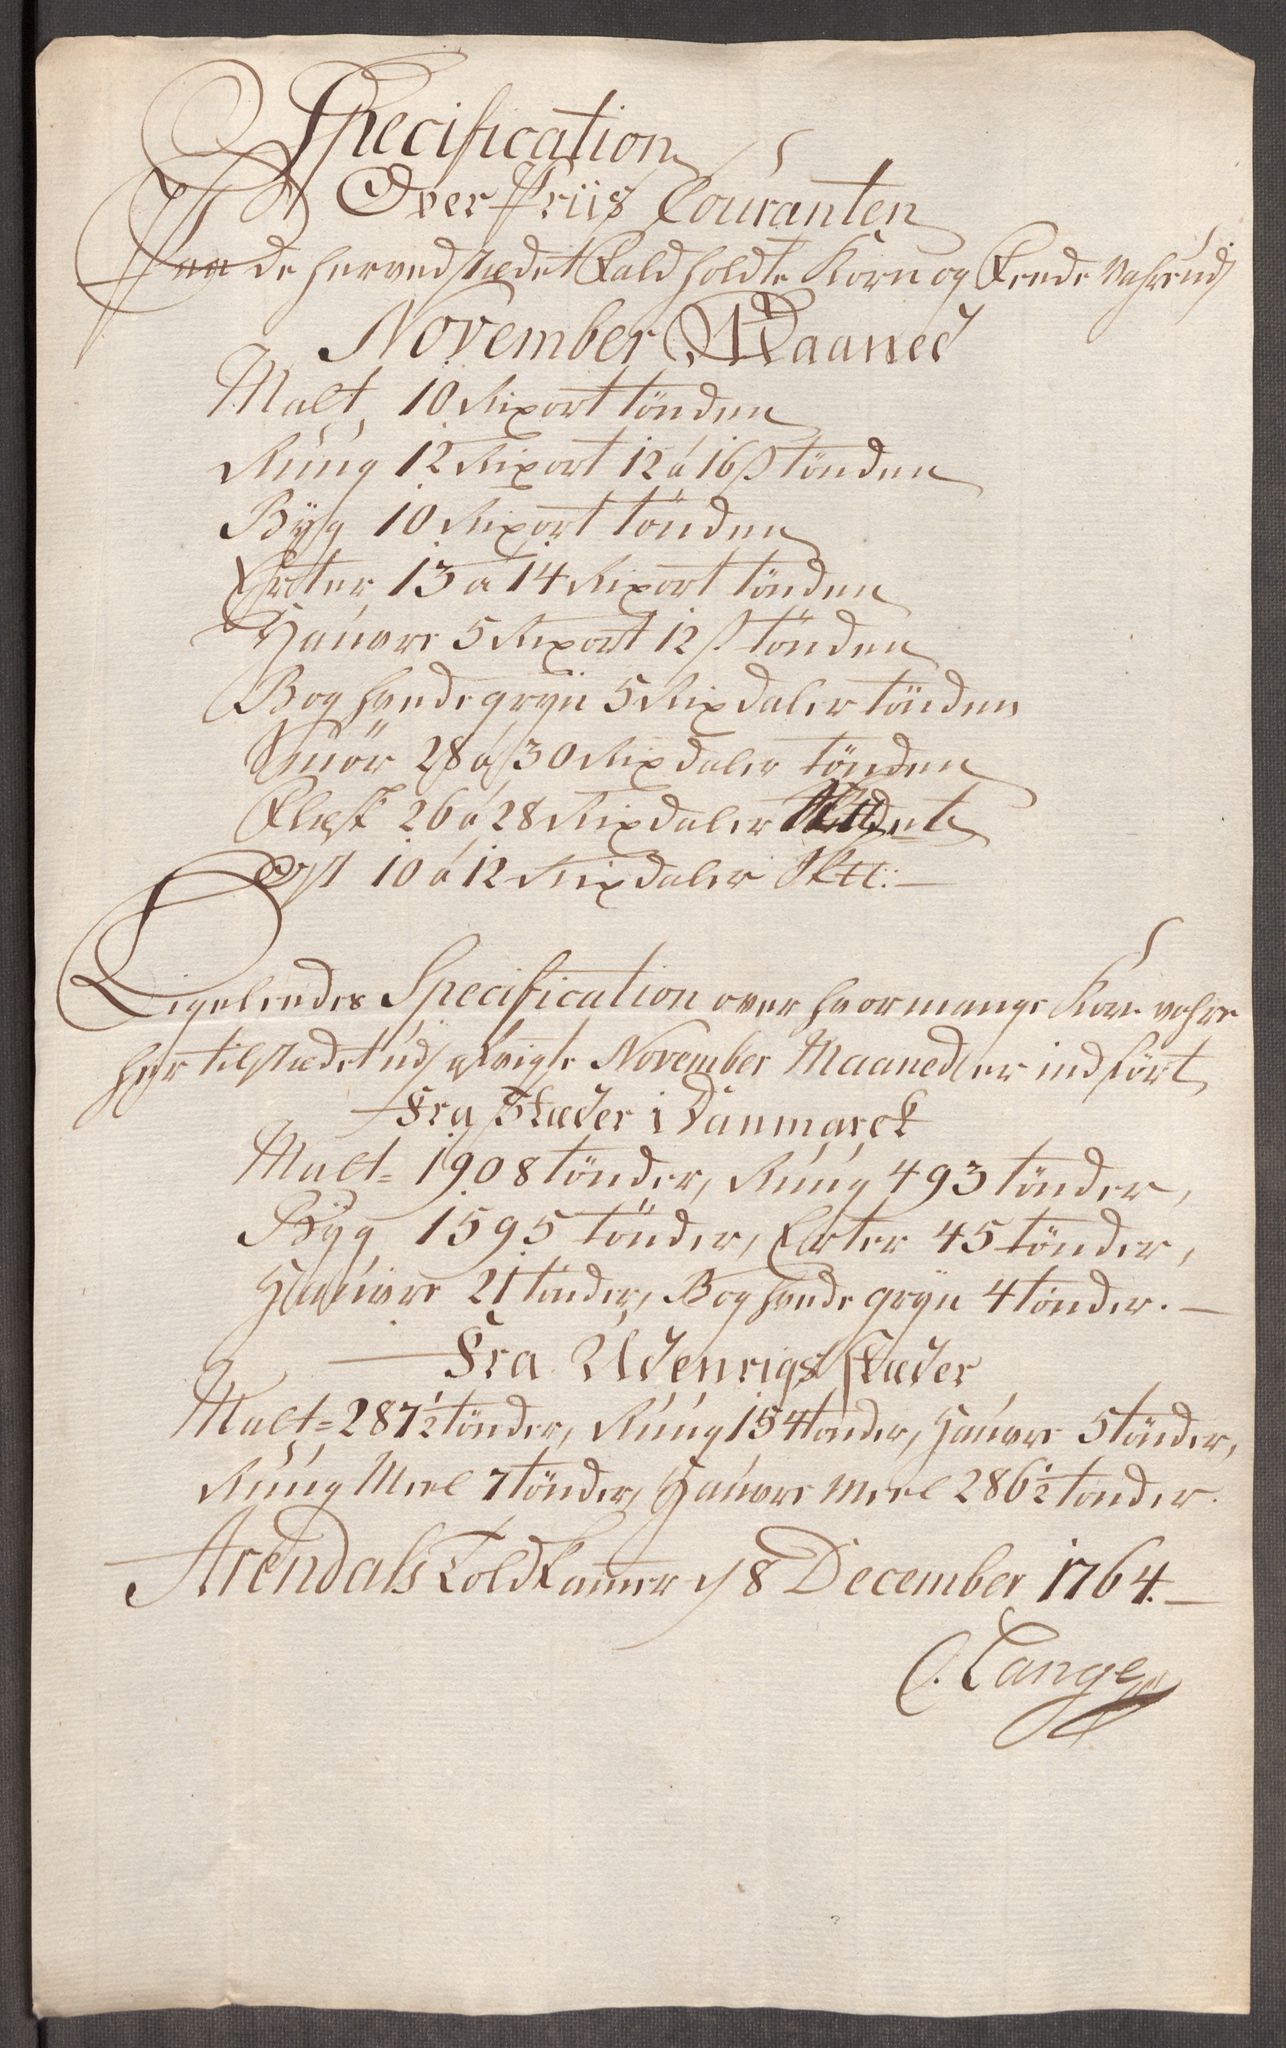 Specification
Over Priis Couranten
Paa de herved stædet Fald holdte Korn og Feede Vahre udj
November Maaned
Malt 10 Rixort tönden
Rúúg 12 Rixort 12 á 16 s tönden
Byg 10 Rixort tönden
Erter 13 a 14 Rixort tönden
Haúvre 5 Rixort 12 s tönden
Boghvedegryn 5 Rixdaler tönden
Smör 28 á 30 Rixdaler tönden
Flæsk 26 á 28 Rixdaler
Ost 10 á 12 Rixdaler Sktt:
Ligeleedes Specification over hvormange Korn vahre
her til stædet udj afvigte November Maaned er indfört
Fra Stæder i Danmarck
Malt= 1908 tönder, Rúúg 493 tönder,
Byg 1595 tönder, Erter 45 tönder,
Haúvre 21 tönder, Boghvedegryn 4 tönder.
Fra Udenrigs stæder
Malt= 287½ tönder, Rúúg 154 tönder, Haúvre 5 tönder,
Rúúg Meel 7 tönder, Haúvre Meel 286½ tönder.
Arendals Toldkamer d 8 December 1764.
C. Lange